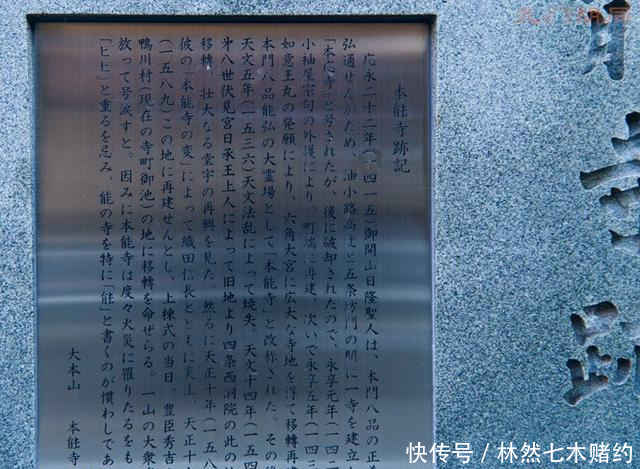 能寺跡
本能寺跡記
応永二十二年(一四一五)御開山日隆聖人は、本門八品の正義
弘通せんがため、油小路高辻と五条坊門の間に一寺を建立
「本応寺」と号されたが、後に破却されたので、永享元年(一四二
小袖屋宗句の外護により、町端に再建、次いで永享五年(一四三
如意王丸の発願により、六角大宮に広大な寺地を得て移轉再
本門八品能弘の大霊場として「本能寺」と改称された。その
天文五年(一五三六)天文法乱によって焼失。天文十四年(一五四
㐧八世伏見宮日承王上人によって旧地より四条西洞院の此の
移轉、壮大なる堂宇の再興を見た。然るに天正十年(一五八
彼の「本能寺の変」によって織田信長とともに炎上、天正十
(一五八九)この地に再建せんとし、上棟式の当日、豊臣秀吉
鴨川村(現在の寺町御池)の地に移轉を命ぜらる。一山の大衆
放って号涙すと。因みに本能寺は度々火災に罹りたるをも
「ヒヒ」と重るを忌み、能の寺を特に「䏻」と書くのが慣わしであ
大本山 本能寺
快传号 / 林然七木赌约